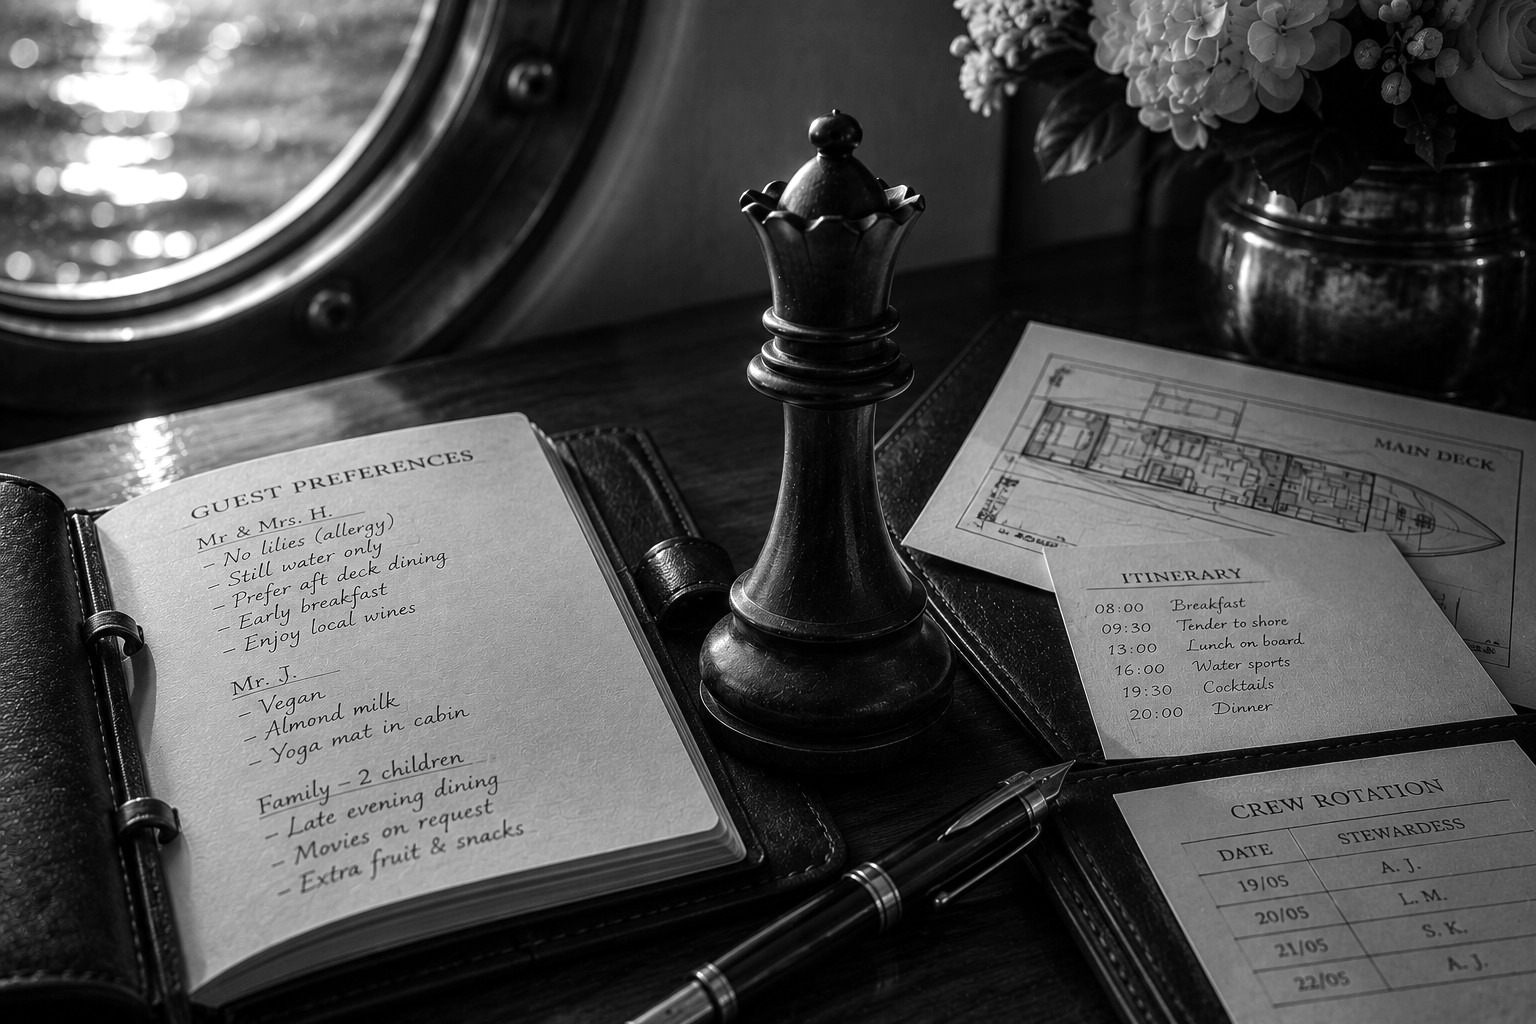 GUEST PREFERENCES
Mr & Mrs. H.
– No lilies (allergy)
– Still water only
– Prefer aft deck dining
– Early breakfast
– Enjoy local wines
Mr. J.
– Vegan
– Almond milk
– Yoga mat in cabin
Family – 2 children
– Late evening dining
– Movies on request
– Extra fruit & snacks
MAIN DECK
ITINERARY
08:00 Breakfast
09:30 Tender to shore
13:00 Lunch on board
16:00 Water sports
19:30 Cocktails
20:00 Dinner
CREW ROTATION
DATE STEWARDESS
19/05 A. J.
20/05 L. M.
21/05 S. K.
22/05 A. J.